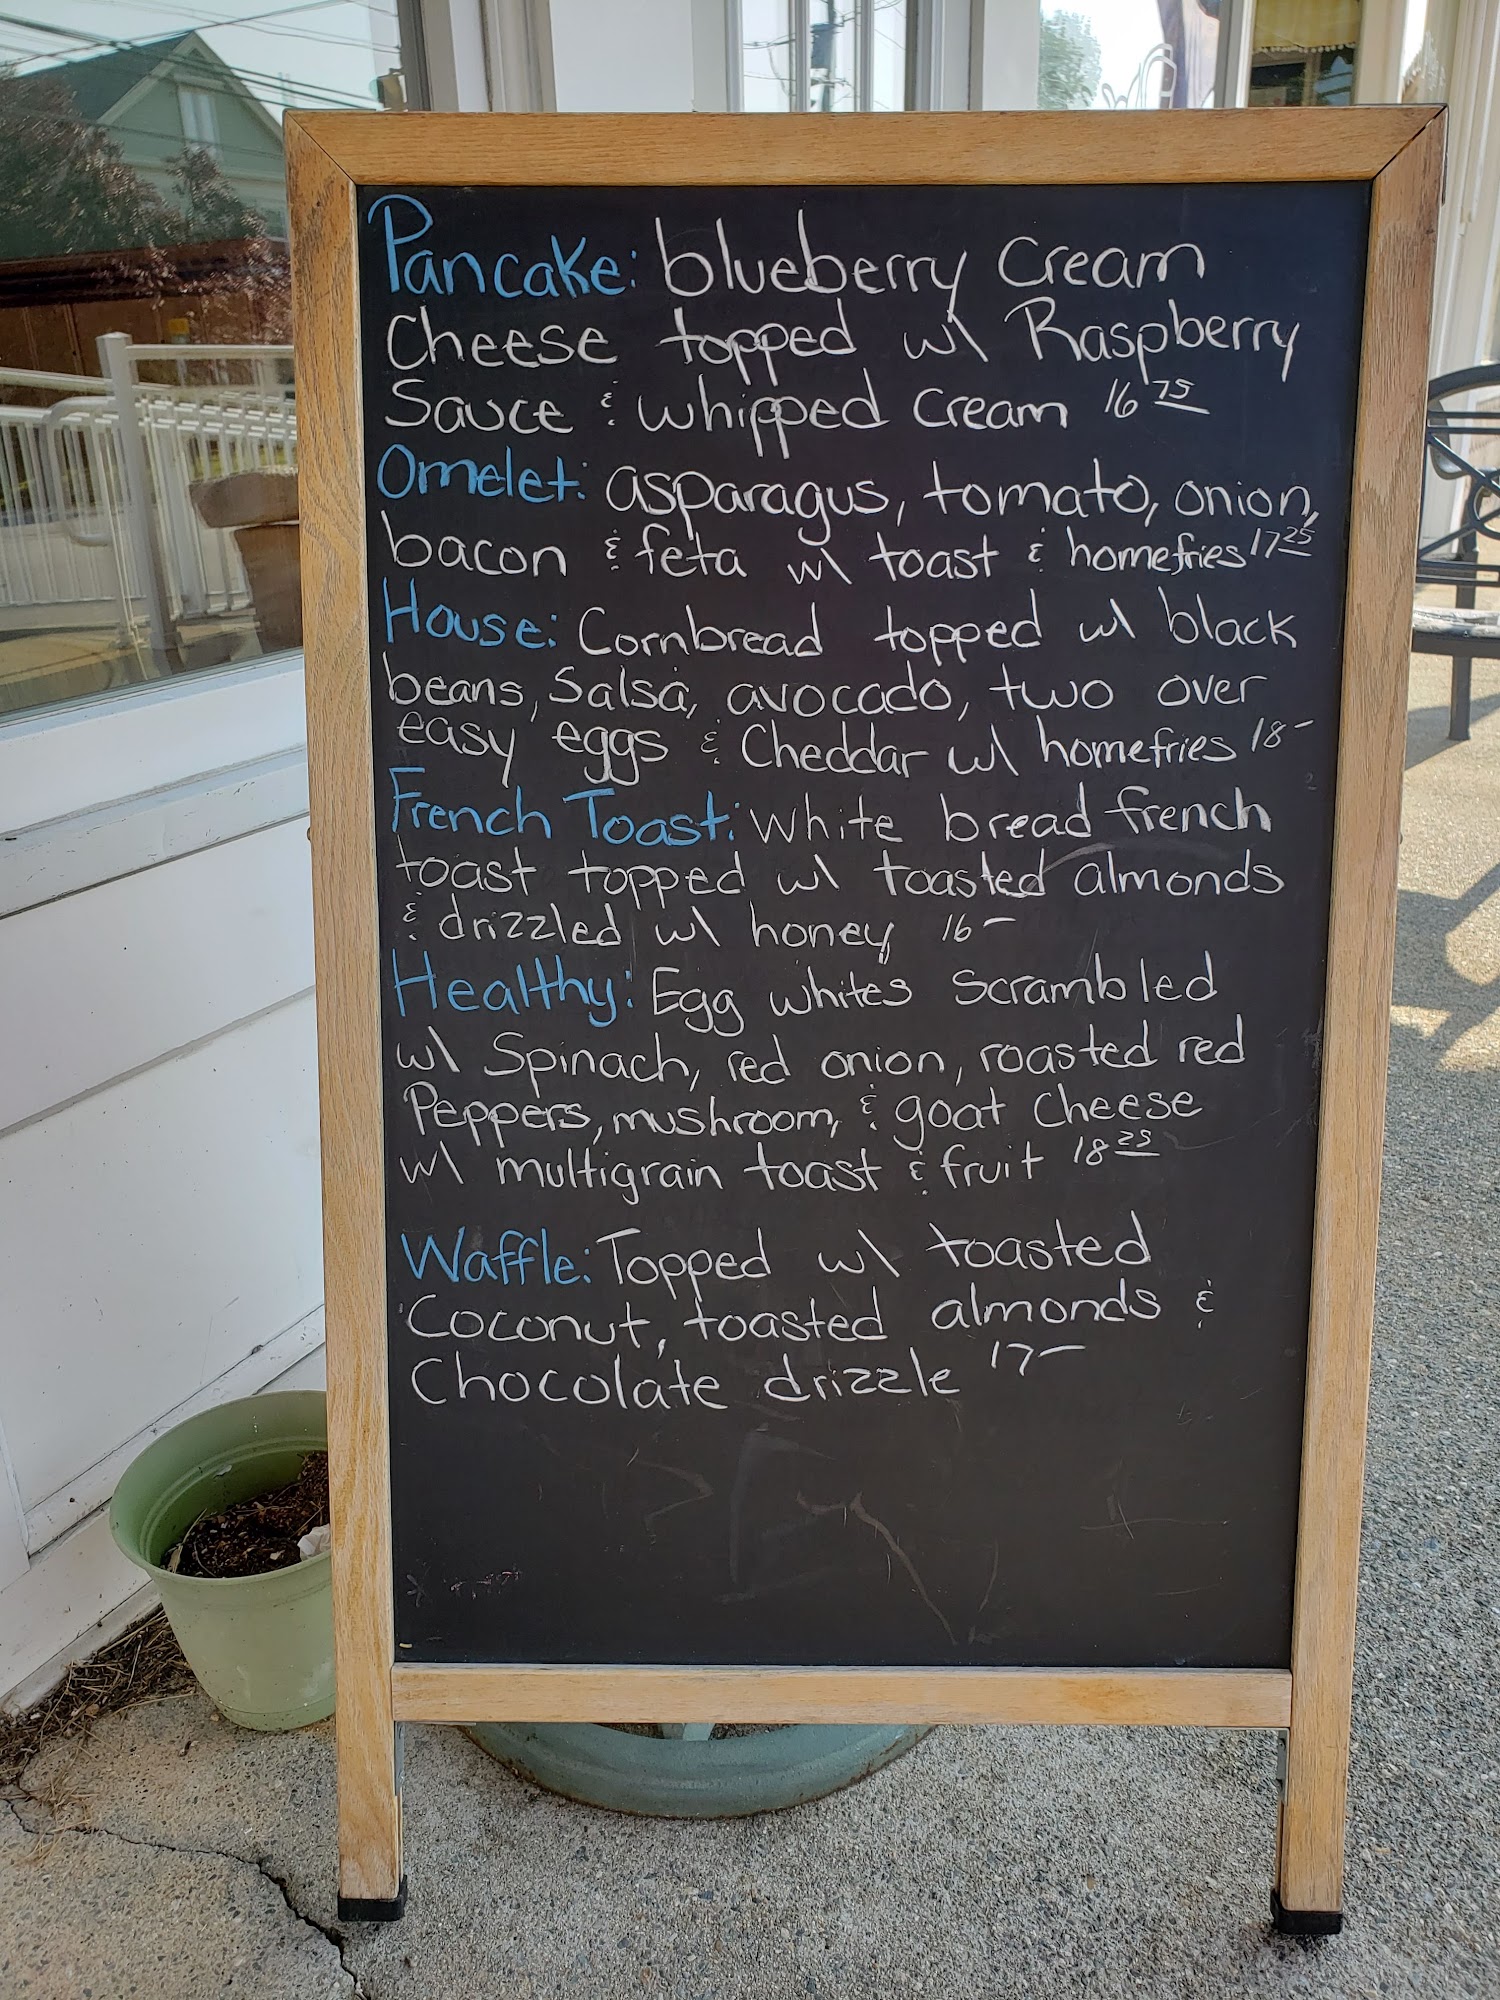 Pancake: blueberry Cream
Cheese topped w/ Raspberry
Sauce & whipped cream 16 75
Omelet: asparagus, tomato, onion,
bacon & feta w/ toast & homefries 17 25
House: Cornbread topped w/ black
beans, Salsa, avocado, two over
easy eggs & Cheddar w/ homefries 18-
French Toast: White bread french
toast topped w/ toasted almonds
& drizzled w/ honey 16-
Healthy: Egg whites Scrambled
w/ Spinach, red onion, roasted red
Peppers, mushroom, & goat cheese
w/ multigrain toast & fruit 18 25
Waffle: Topped w/ toasted
Coconut, toasted almonds &
Chocolate drizzle 17-